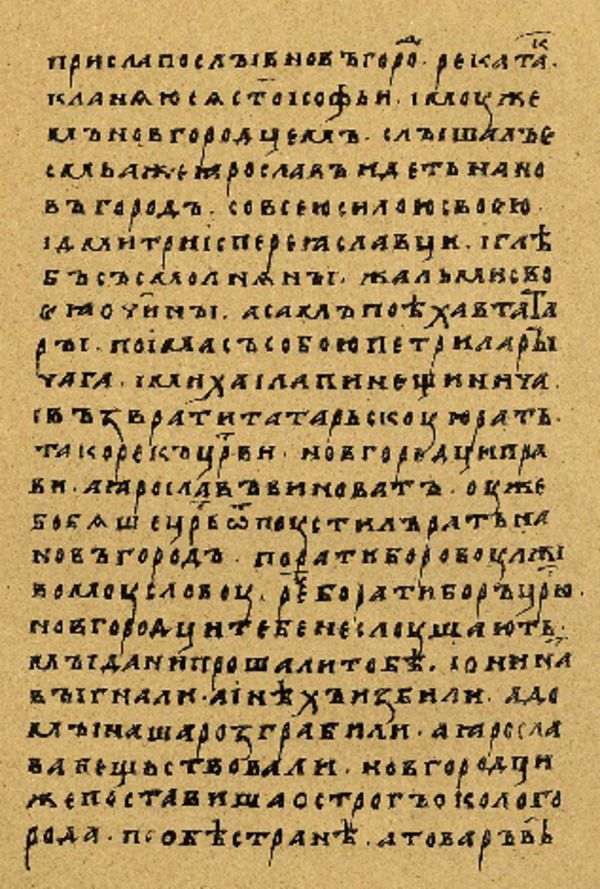 присла послъıвновъгоро҃д · реката҃к ·
кланѧюсѧст҃оісофьи · імоуже
мъновгородцемъ · слъıшалъе
смьажеꙗрославъидетьнано
въгородъ · совсеюсилоюсвоею ·
ідмитриіспереꙗславци · іглѣ
бъсъсмолнѧнъı · жальмисво
еꙗоч҃инъı · асамъпоѣхавтата
ръı · поімасъсобоюпетриларъı
чага · імихаілапинещинича ·
івъзвратитатарьскоуюрать ·
такорекъцр҃ви · новгородципра
ви · аꙗрославъвиноватъ · оуже
бобѧшецр҃ьѿпоустилъратьна
новъгородъ · поратибороволжі
вомоусловоу · ре҃боратиборъцр҃ю ·
новгородцитебенеслоушають ·
мъıданипрошалитобѣ · іонина҃
въıгнали · аінѣхъизбили · адо
мъıнашарозграбили · аꙗросла
вабещьствовали · новгородци
жепоставишаострогъоколого
рода · пообѣстранѣ · атоваръвъ